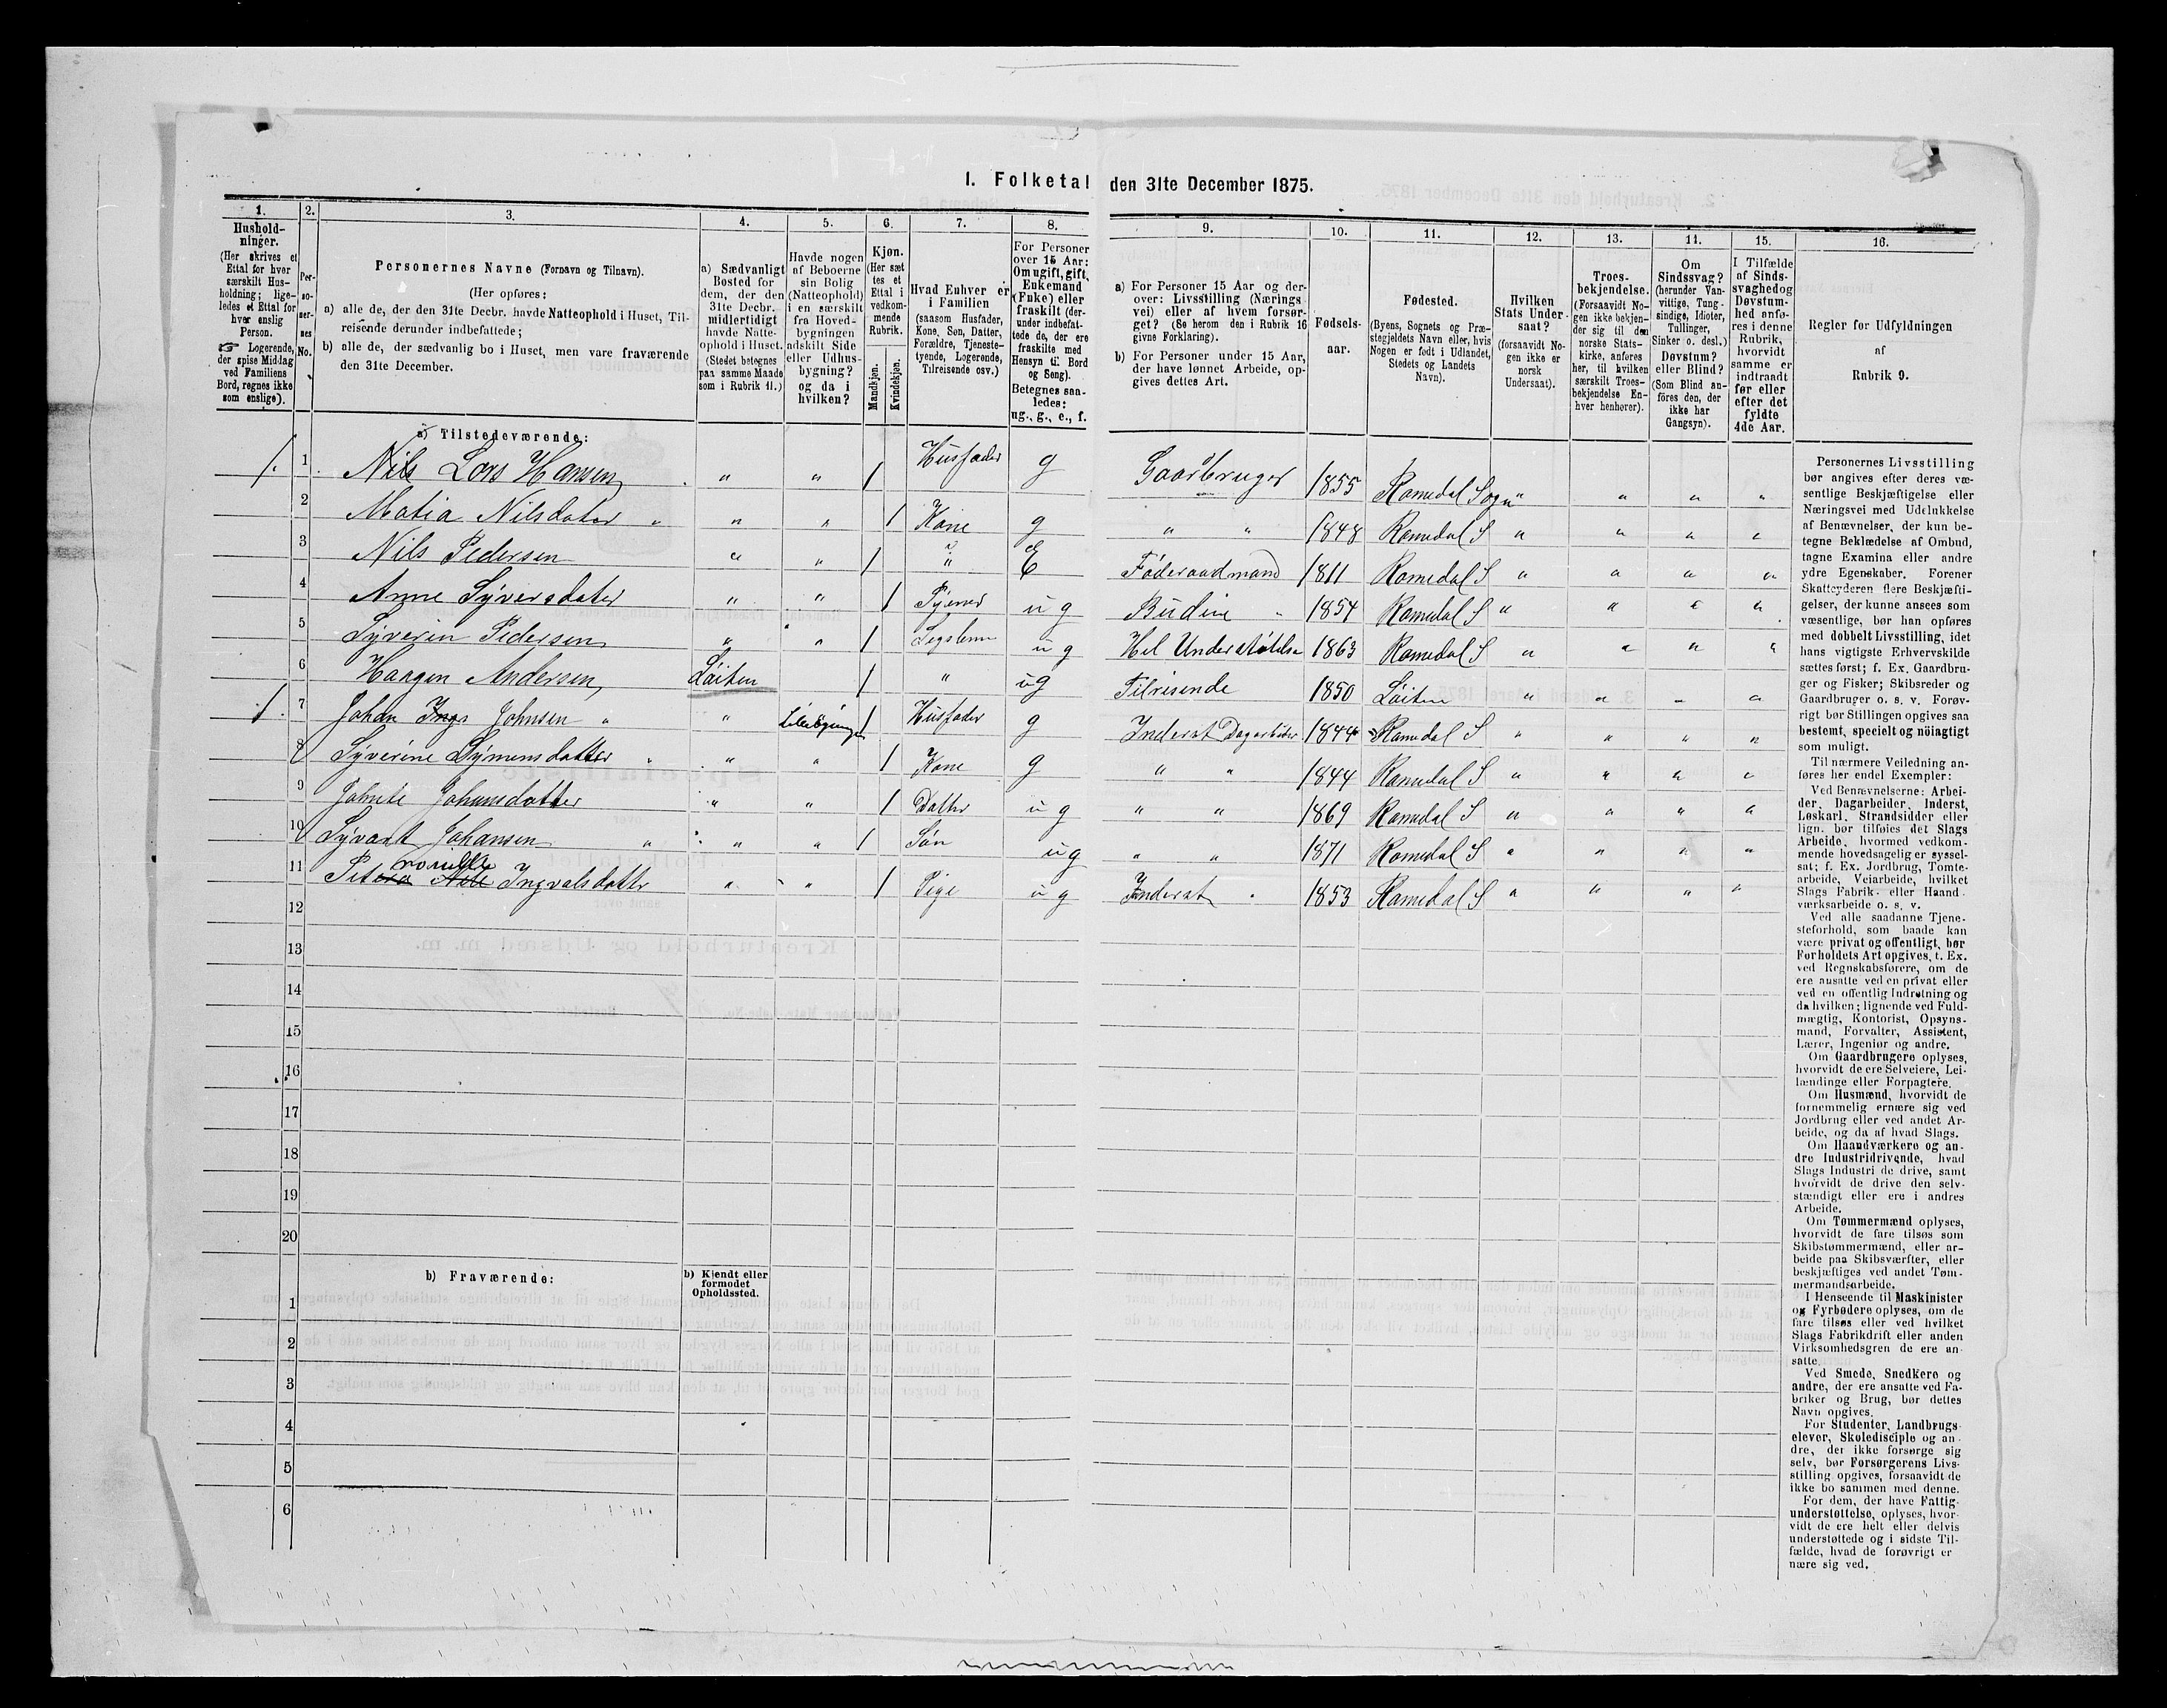 I. Folketal den 31te December 1875.
1. 2. 3. 4. 5. 6. 7. 8. 9. 10. 11. 12. 13. 14. 15. 16.
Hushold-
ninger.
(Her skrives et
Ettal for hver
særskilt Hus-
holdning; lige-
ledes et Ettal for
hver enslig
Person.
☞ Logerende,
der spise Middag
ved Familiens
Bord, regnes ikke
som enslige).
Per-
so-
ner-
nes
No.
Personernes Navne (Fornavn og Tilnavn).
(Her opføres:
a) alle de, der den 31te Decbr. havde Natteophold i Huset, Til-
reisende derunder indbefattede;
b) alle de, der sædvanlig bo i Huset, men vare fraværende
den 31te December.
a) Sædvanligt
Bosted for
dem, der den
31te Decbr.
midlertidigt
havde Natte-
ophold i Huset.
(Stedet betegnes
paa samme Maade
som i Rubrik 11.)
Havde nogen
af Beboerne
sin Bolig
(Natteophold)
i en særskilt
fra Hoved-
bygningen
adskilt Side
eller Udhus-
bygning?
og da i
hvilken?
Kjøn.
(Her sæt
tes et
Ettal i
vedkom-
mende
Rubrik.
Mandkjøn.
Kvindekjøn.
Hvad Enhver er
i Familien
(saasom Husfader,
Kone, Søn, Datter,
Forældre, Tjeneste-
tyende, Logerende,
Tilreisende osv.)
For Personer
over 15 Aar:
Om ugift, gift,
Enkemand
(Enke) eller
fraskilt (der-
under indbefat-
tede de, der ere
fraskilte med
Hensyn til Bord
og Seng).
Betegnes saa-
ledes:
ug., g., e., f.
a) For Personer 15 Aar og der-
over: Livsstilling (Nærings-
vei) eller af hvem forsør-
get? (Se herom den i Rubrik 16
givne Forklaring).
b) For Personer under 15 Aar,
der have lønnet Arbeide, op-
gives dettes Art.
Fødsels-
aar.
Fødested.
(Byens, Sognets og Præ-
stegjeldets Navn eller, hvis
Nogen er født i Udlandet,
Stedets og Landets
Navn).
Hvilken
Stats Under-
saat?
(forsaavidt No-
gen ikke er
norsk
Undersaat).
Troes-
bekjendelse.
(Forsaavidt No-
gen ikke bekjen-
der sig til den
norske Stats-
kirke, anføres
her, til hvilken
særskilt Troes-
bekjendelse En-
hver henhører).
Om
Sindssvag?
(herunder Van-
vittige, Tung-
sindige, Idioter,
Tullinger,
Sinker o. desl.)
Døvstum?
eller Blind?
(Som Blind an-
føres den, der
ikke har
Gangsyn).
I Tilfælde
af Sinds-
svaghed og
Døvstum-
hed anfø-
res i denne
Rubrik,
hvorvidt
samme er
indtraadt
før eller
efter det
fyldte
4de Aar.
Regler for Udfyldningen
af
Rubrik 9.
a) Tilstedeværende:
1. 1 Nils Lars Hansen " " 1 Husfader g Gaardbruger 1855 Romedal Sogn " " " "
2 Matia Nilsdater " " 1 Kone g " " 1848 Romedal S " " " "
3 Nils Pedersen " " 1 " E Føderaadmand 1811 Romedal S " " " "
4 Anne Syversdater " " 1 Tjener u g Budeie 1854 Romedal S " " " "
5 Syverin Pedersen " " 1 Legslem u g Hel Understøtelse 1863 Romedal S " " " "
6 Haagen Andersen Løiten 1 " ug Tilreisende 1850 Løiten " " " "
1. 7 Johan Johnsen " " 1 Husfader g Inderst Dagarbeider 1844 Romedal S " " " "
8 Syverine Symensdatter " " 1 Kone g " " 1844 Romedal S " " " "
9 Johnte Johansdatter " " 1 Datter u g " " 1869 Romedal S " " " "
10 Syvart Johansen " " 1 Søn ug " " 1871 Romedal S " " " "
11 Ingvalsdatter " " 1 Pige u g Inderst 1853 Romedal S " " " "
12
13
14
15
16
17
18
19
20
b) Fraværende:
b) Kjendt eller
formodet
Opholdssted.
1
2
3
4
5
6
Personernes Livsstilling
bør angives efter deres væ-
sentlige Beskjæftigelse eller
Næringsvei med Udelukkelse
af Benævnelser, der kun be-
tegne Beklædelse af Ombud,
tagne Examina eller andre
ydre Egenskaber. Forener
Skatteyderen flere Beskjæfti-
gelser, der kunne ansees som
væsentlige, bør han opføres
med dobbelt Livsstilling, idet
hans vigtigste Erhvervskilde
sættes først; f. Ex. Gaardbru-
ger og Fisker; Skibsreder og
Gaardbruger o. s. v. Forøv-
rigt bør Stillingen opgives saa
bestemt, specielt og nöiagtigt
som muligt.
Til nærmere Veiledning an-
føres her endel Exempler:
Ved Benævnelserne: Arbei-
der, Dagarbeider, Inderst,
Løskarl, Strandsidder eller
lign. bør tilføies det Slags
Arbeide, hvormed vedkom-
mende hovedsagelig er syssel-
sat; f. Ex. Jordbrug, Tomte-
arbeide, Veiarbeide, hvilket
Slags Fabrik- eller Haand-
værksarbeide o. s. v.
Ved alle saadanne Tjene-
steforhold, som baade kan
være privat og offentligt, bør
Forholdets Art opgives, t. Ex.
ved Regnskabsførere, om de
ere ansatte ved en privat eller
ved en offentlig Indretning og
da hvilken; lignende ved Fuld-
mægtig, Kontorist, Opsyns-
mand, Forvalter, Assistent,
Lærer, Ingeniør og andre.
Om Gaardbrugere oplyses,
hvorvidt de ere Selveiere, Lei-
lændinge eller Forpagtere.
Om Husmænd, hvorvidt de
fornemmelig ernære sig ved
Jordbrug eller ved andet Ar-
beide, og da af hvad Slags.
Om Haandværkere og an-
dre Industridrivende, hvad
Slags Industri de drive, samt
hvorvidt de drive den selv-
stændigt eller ere i andres
Arbeide.
Om Tømmermænd oplyses,
hvorvidt de fare tilsøs som
Skibstømmermænd, eller ar-
beide paa Skibsværfter, eller
beskjæftiges ved andet Tøm-
mermandsarbeide.
I Henseende til Maskinister
og Fyrbødere oplyses, om de
fare tilsøs eller ved hvilket
Slags Fabrikdrift eller anden
Virksomhedsgren de ere an-
satte.
Ved Smede, Snedkere og
andre, der ere ansatte ved Fa-
briker og Brug, bør dettes
Navn opgives.
For Studenter, Landbrugs-
elever, Skoledisciple og an-
dre, der ikke forsørge sig
selv, bør Forsørgerens Livs-
stilling opgives, forsaavidt de
ikke bo sammen med denne.
For dem, der have Fattig-
understøttelse, oplyses, hvor-
vidt de ere helt eller delvis
understøttede og i sidste Til-
fælde, hvad de forøvrigt er
nære sig ved.